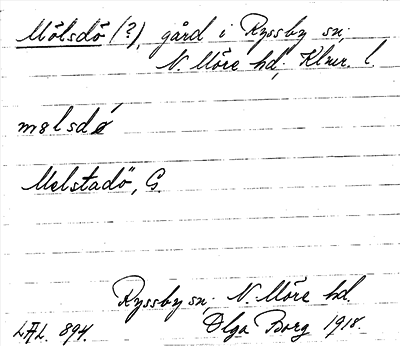 Mölsdö (?), gård i Ryssby sn;
N. Möre hd, Klmr. l.
mslsdǿ
Melstadö, G.
Ryssby sn; N. Möre hd.
LAL. 894. Olga Borg 1918.